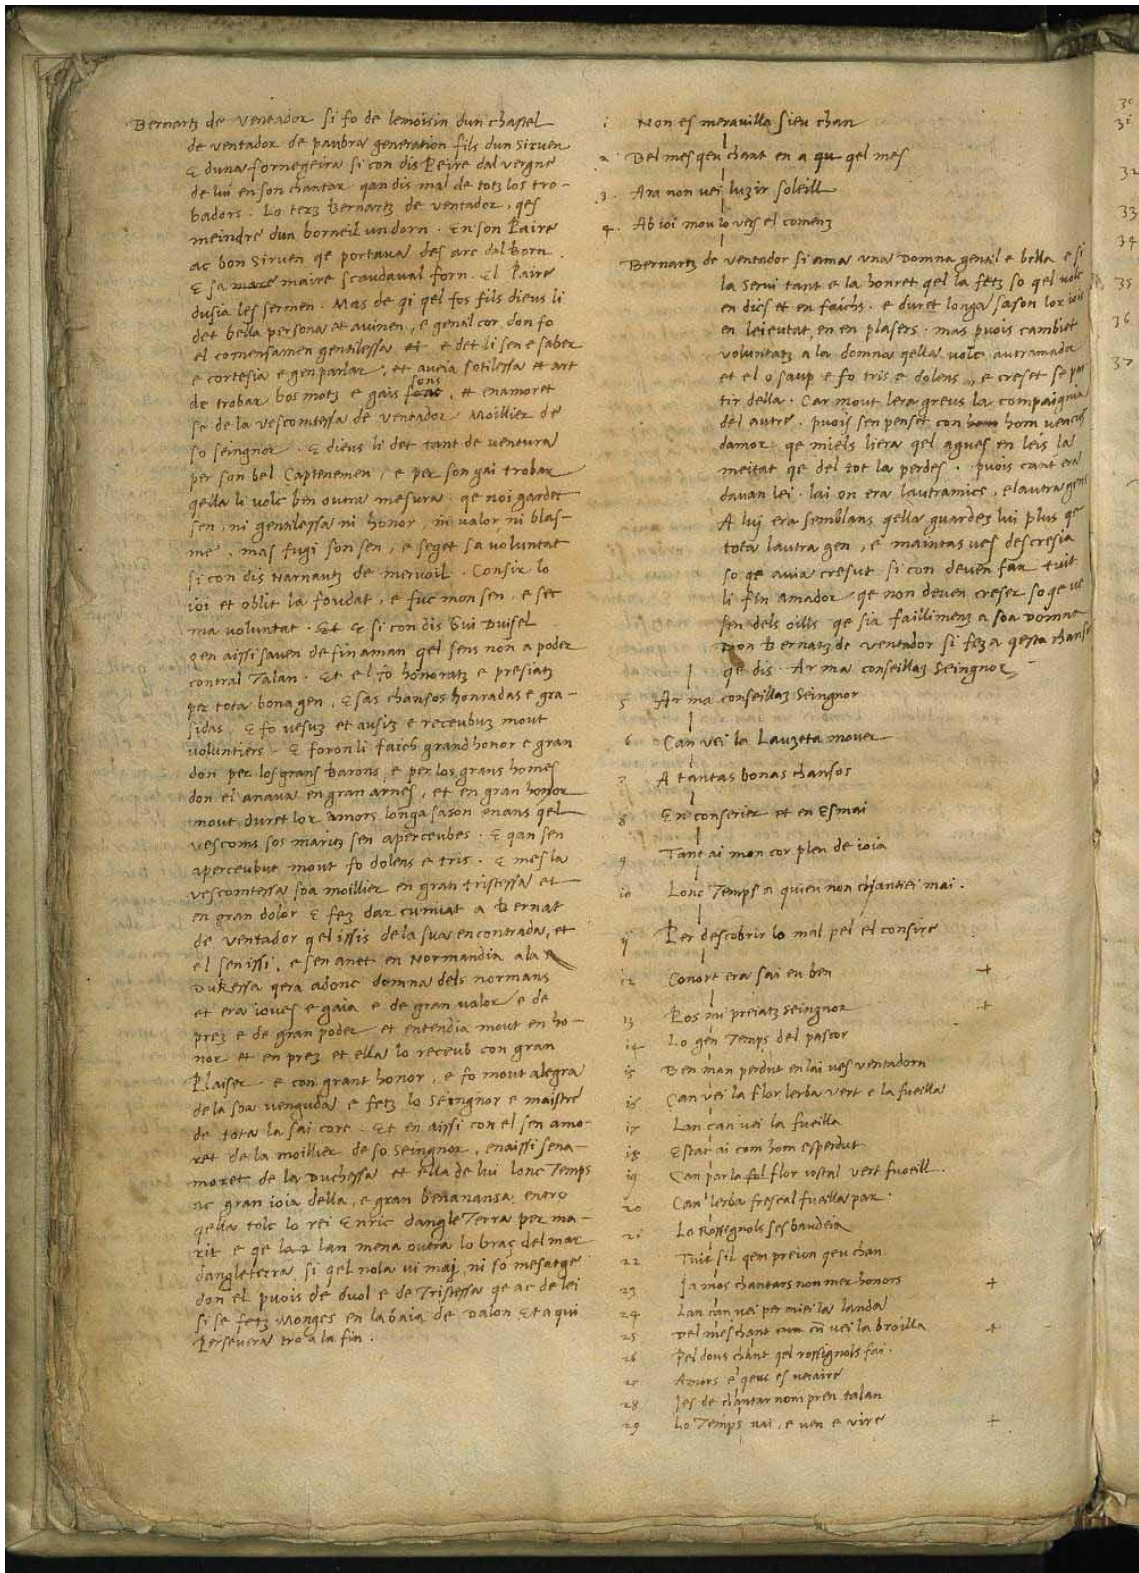 Bernartz de ventador si fo de lemoisin dun chastel
de ventador de paubra generation fils dun siruen
E duna fornegeira si con dis Peire dalvergne
de lui en son chantar qan dis mal de totz los tro-
badors. Lo terz Bernartz de ventador, qes
meindre dun borneil un dorn. En son Paire
ac bon siruen qe portava des arc dalborn.
E sa maire scaudaval forn. El Paire
dusia les sermen. Mas de qi qel fos fils dieus li
det bella persona et avinen, e gentil cor don fo
el comensamen gentilessa e det li sen e saber
e cortesia e gen parlar, et aveia sotilessa et art
de trobar bos motz e gais sons, et enamoret
se de la vescomtessa de ventador Moillier de
so seingnor. E dieus li det tant de ventura
per son bel Captenemen, e per son gai trobar
qella li volc ben outra mesura. qe noi gardet
sen, ni gentilessa ni honor, ni valor ni blas-
me, mas fugi son sen, e seget sa voluntat
si con dis Narnautz de mervoil. Consir lo
ioi et oblit la foudat, e fuc mon sen, e sec
ma voluntat. Et E si con dis Gui Duisel
qen aissi saven de fin aman qel sens non a poder
contral Talan. Et el fo honoratz e presiatz
per tota bona gen, E sas chansos honradas e gra-
sidas. E fo vesuz et ausiz e receubuz mout
voluntiers. E foron li faich grand honor e gran
don per los grans Barons, e per los grans homes
don el anava en gran arnes, et en gran honor
mout duret lor amors longa sason enans qel
vescoms sos maritz sen aperceubes. E qan sen
aperceubut mout fo dolens e tris. E mes la
vescomtessa soa moillier en gran tristessa et
en gran dolor E fez dar cumiat a Bernat
de ventador qel issis de la sua encontrada, et
el sen issi, e sen anet en Normandia a la
Dukessa qera adonc domna dels normans
et era ioves e gaia e de gran valor e de
prez e de gran poder et entendia mout en ho-
nor et en prez et ella lo receub con gran
Plaiser e con grant honor, e fo mout alegra
de la soa venguda e fetz lo Seingnor e maistre
de tota la sai cort. Et en aissi con el sen amo-
ret de la moillier de so Seingnor, enaissi sena-
moret de la Duchessa et ella de lui lonc Temps
ac gran ioia della, e gran benanansa, entro
qella tolc lo rei Enric dangleTerra per ma-
rit e qe la lan mena outra lo braç del mar
dangleterra si qel nola vi mai, ni so mesatge
don el puois de duol e de Tristessa qe ac de lei
si se fetz Monges en labaia de Dalon Et aqui
Perseverа tro a la fin.
i Non es meravilla sieu chan
2. Del mes qeu chant en a qu qel mes
3. Ara non vei luzir soleill
4. Ab ioi mou lo vers el comenz
Bernartz de ventador si ama una Domna gentil e bella e si
la servi tant e la honret qel la fetz so qel volc
en dics et en faichs. e duret longa sason lor iois
en leieutat, en en plasers. mas puois cambiet
voluntatz a la domna qella volc autramador
et el o saup e fo tris e dolens, e creset se par
tir della. Car mout lera greus la compaignia
del autre. puois sen penset con hom vencus
damor qe miels liera qel agues en leis la
meitat qe del tot la perdes. puois cant era
davan lei. lai on era lautramics, e lautra gens
A lui era semblans qella guardes lui plus qe
tota lautra gen, e maintas ves descresia
so qe avia cresut si con deven far tuit
li fin amador qe non deven creser so qe ve
sen dels oills qe sia faillimenz a soa Domna
Don Bernatz de ventador si fez aqesta chanso
qe dis. Ar ma conseillaz Seingnor
5 Ar ma conseillaz Seingnor
6 Can vei la Lauzeta mover
7 A tantas bonas chansos
8 En conserier et en Esmai
9 Tant ai mon cor plen de ioia
10 Lonc Temps a quieu non chantiei mai.
ij Per descobrir lo mal pel el consire
12 Conort era sai eu ben +
13 Pos mi preiatz seingnor +
14 Lo gen Temps del pascor
15 Ben man perdut en lai ves ventadorn
16 Can vei la flor lerba vert e la fueilla
17 Lan can vei la fueilla
18 Estat ai com hom esperdut
19 Can par la flor vostal vert fuoeill.
20 Can lerba frescal fueilla par.
21 Lo Rossegnols ses baudeia
22 Tuit sil qem preion qeu chan
23 Ja mos chantars non mer honors +
24 Lan can vei per miei la landa
25 Del mes chant cn vei la broilla +
26 Pel dous chant qel rossignols fai.
27 Amors e qeus es veiaire
28 Ies de chantar nom pren talan
29 Lo Temps vai, e ven e vire +
30
3i
32
33
34
35
36
37